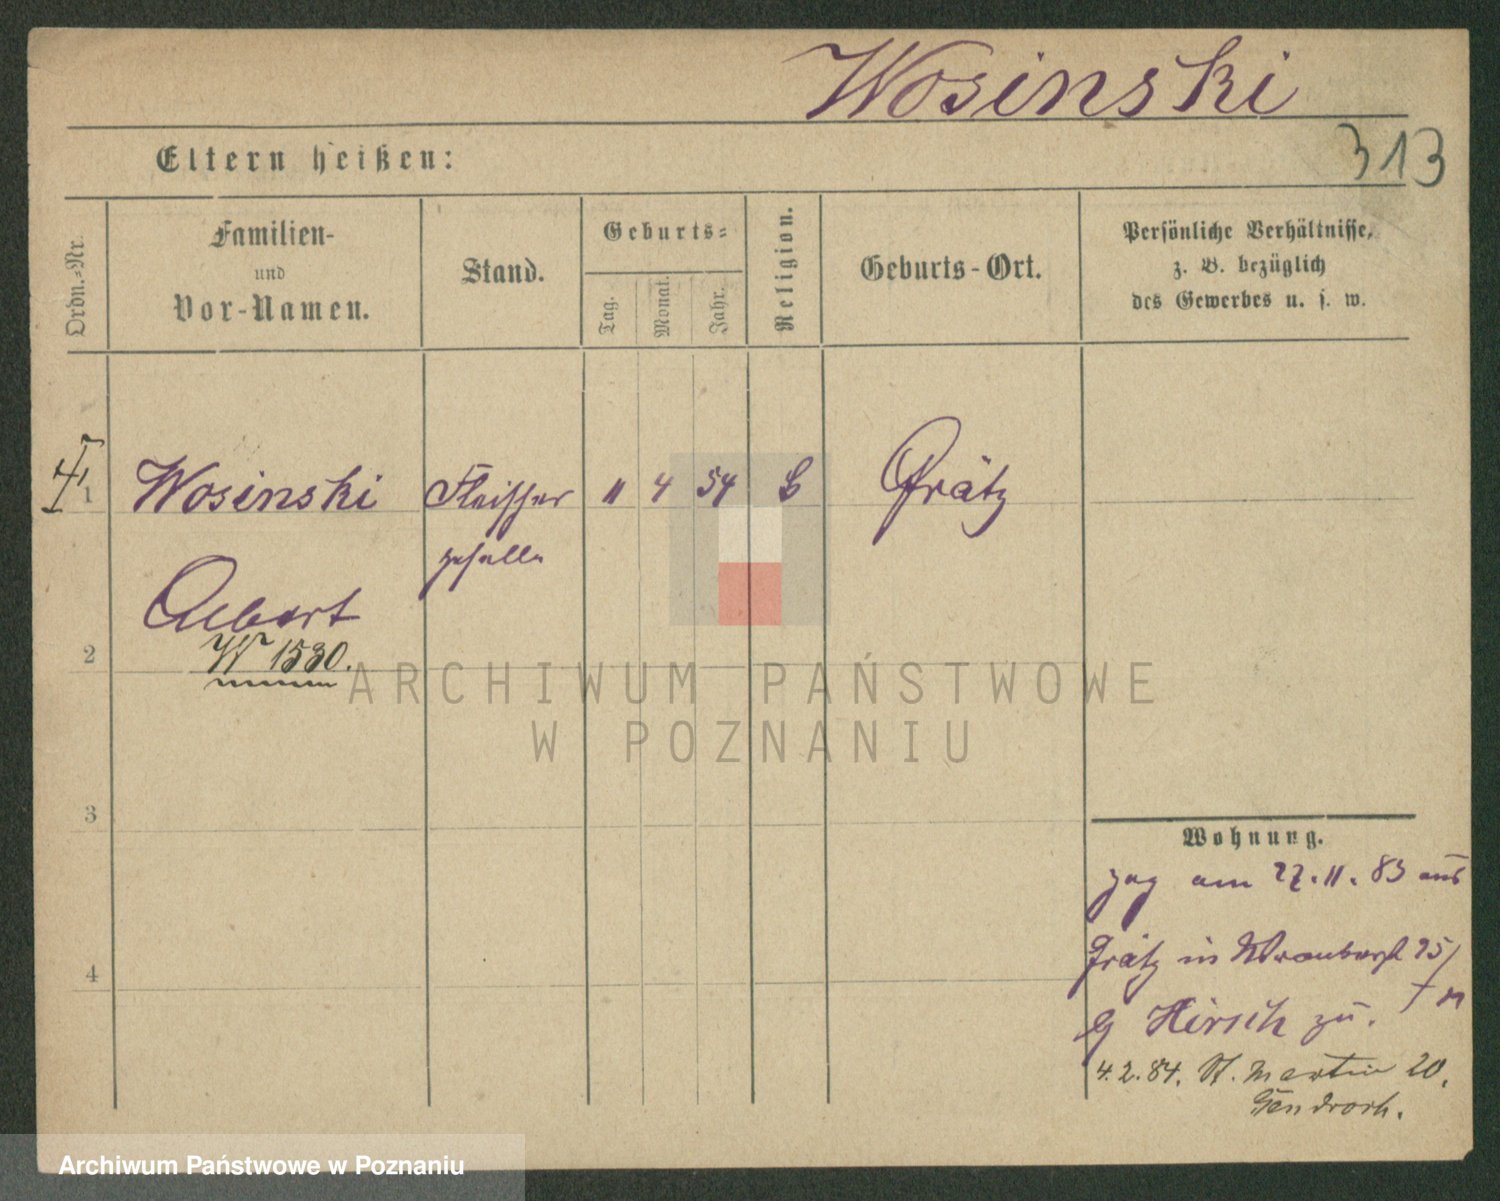 Wosinski
313
Eltern heißen:
Ordn.-Nr.
Familien-
und
Vor-Namen.
Stand.
Geburts-
Tag.
Monat.
Jahr.
Religion.
Geburts-Ort.
Persönliche Verhältnisse,
z. B. bezüglich
des Gewerbes u. s. w.
1 Wosinski Fleischer 11 4 54 Grätz
geselle
Albert
2 W 1530.
3
4
Wohnung.
zog am 27.11.83 aus
Grätz in
Hirsch zu.
4.2.84. St. Martin 20.
ARCHIWUM PAŃSTWOWE
W POZNANIU
Archiwum Państwowe w Poznaniu